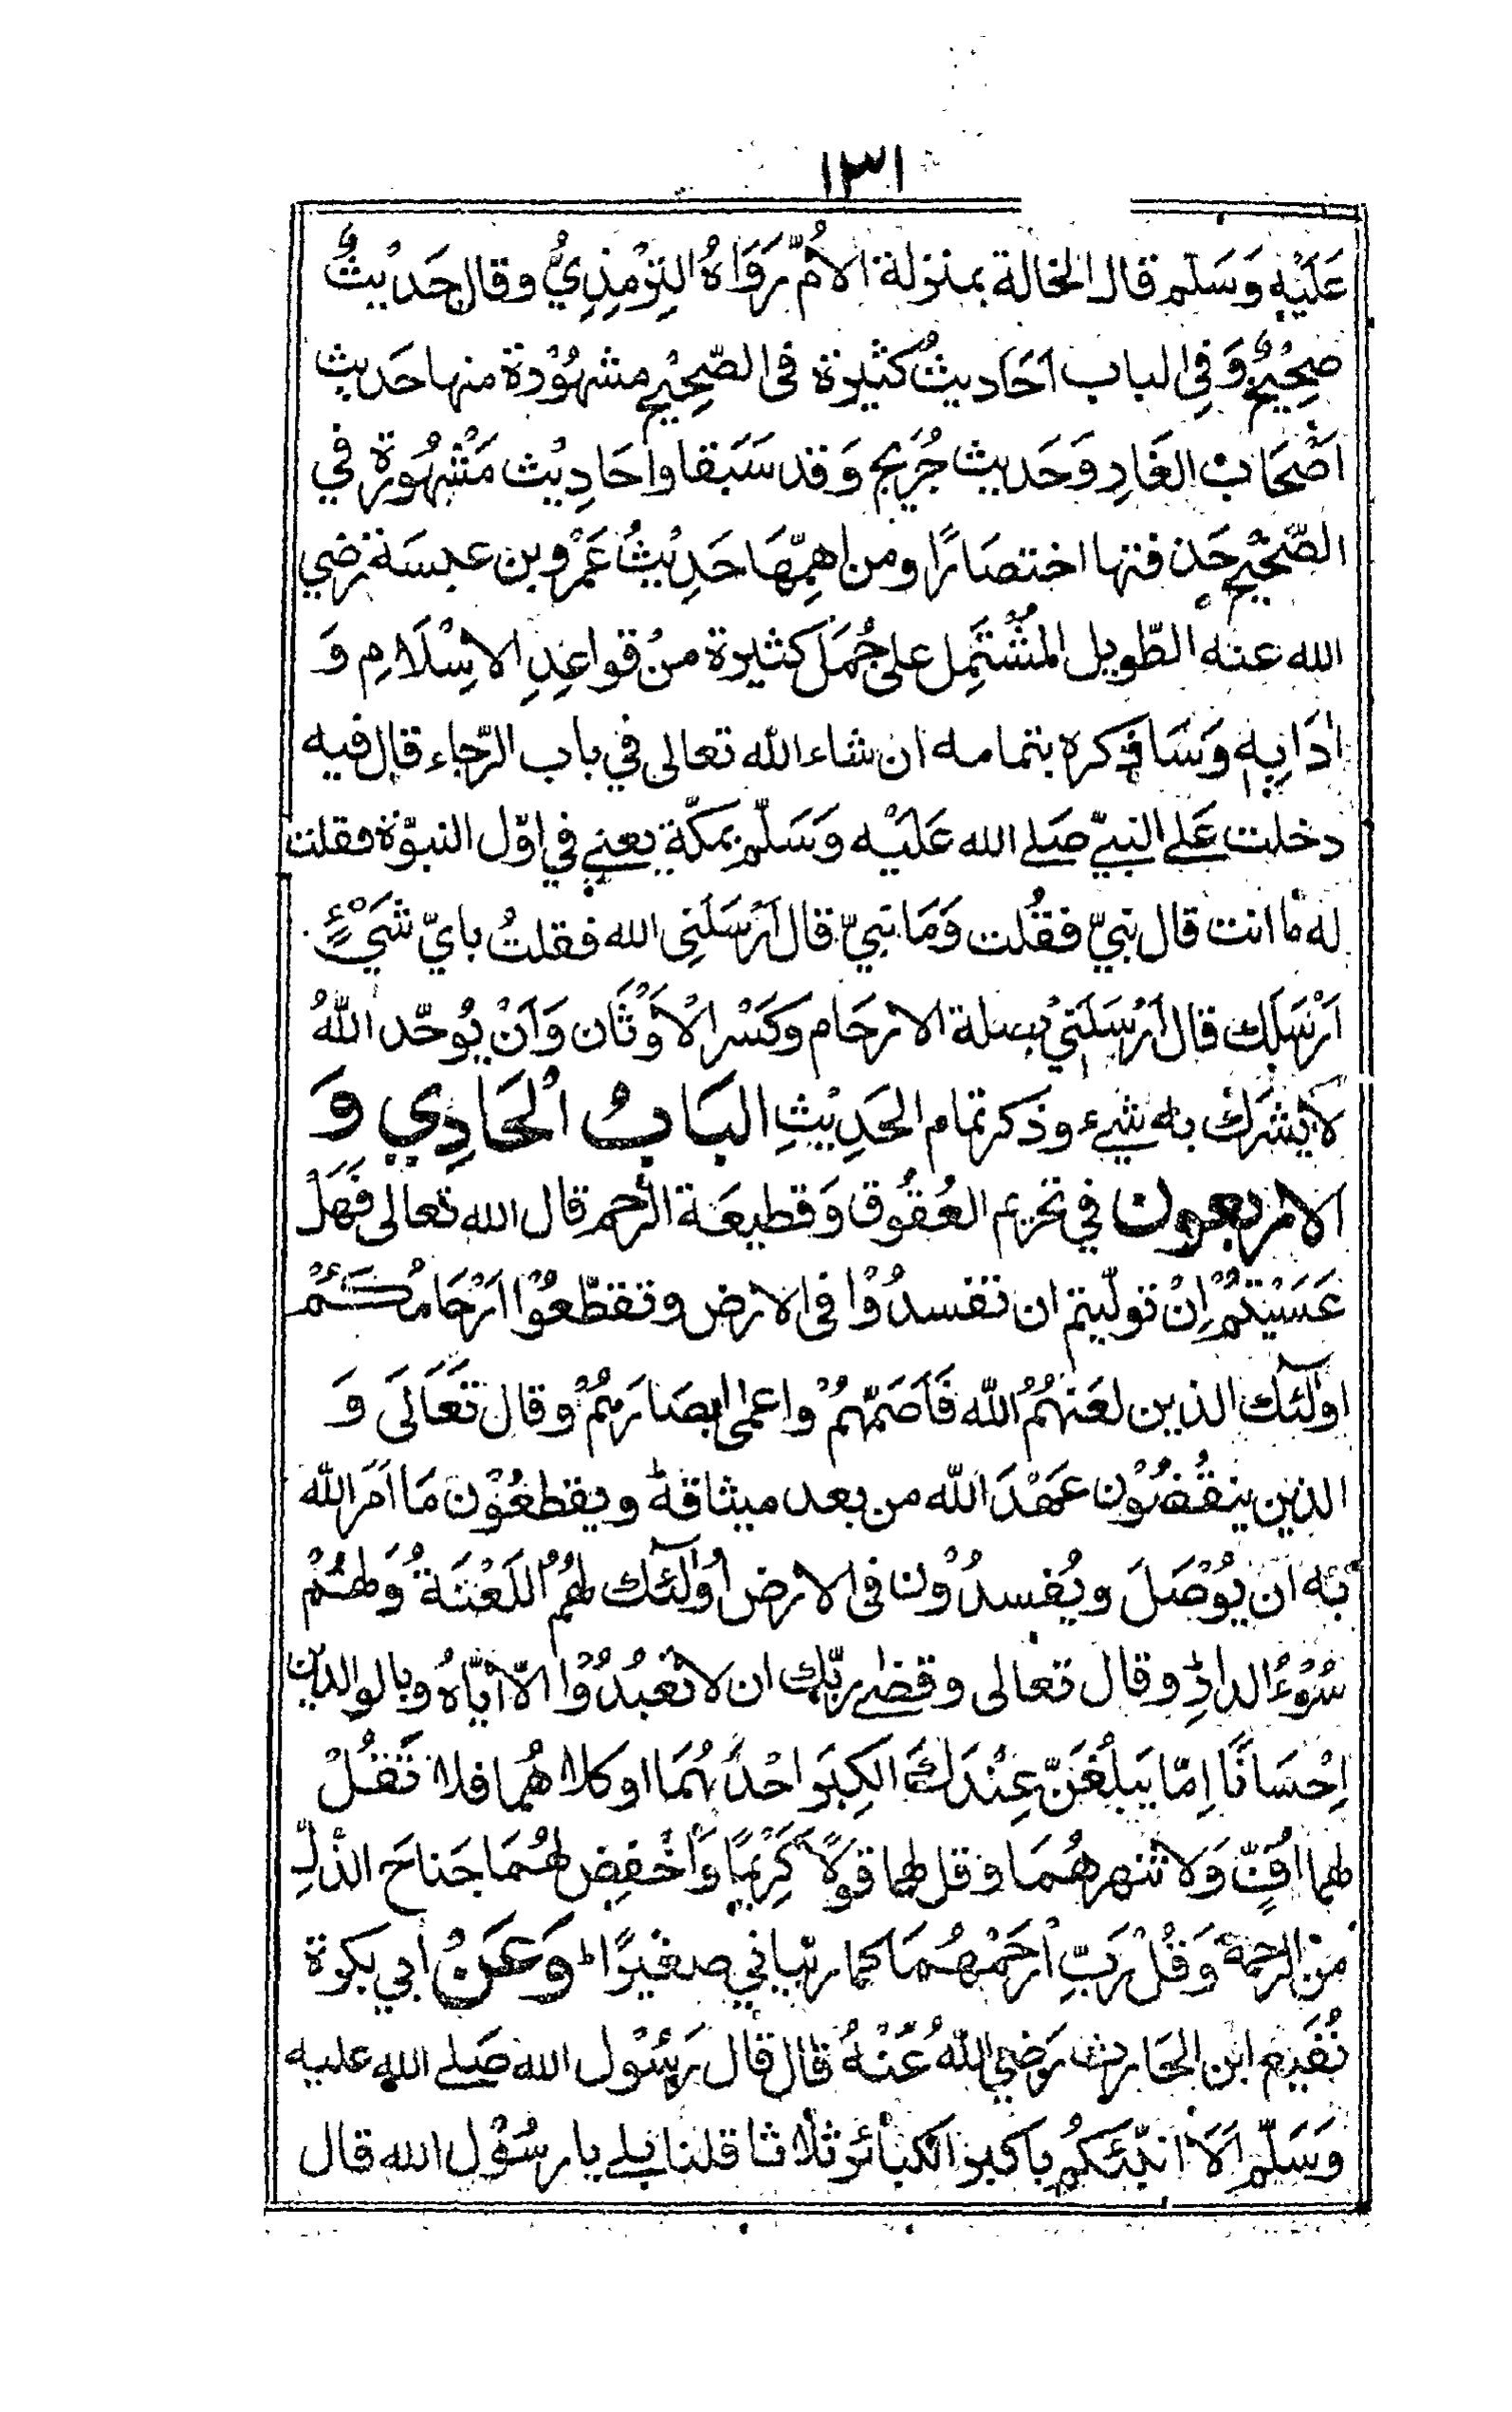 ١٣١
عَلَيْهِ وَسَلم قال الخالة بمنزلة الأُمّ رَوَاهُ التِرْمِذِيُّ وقال حَدِيْثٌ
صَحِيْحٌ وَفِي الباب اَحَادِيثُ كثيرة فى الصَّحِيْح مشهُوْرة منها حَدِيث
اَصْحَاب الغَارِ وَحَديث جُرَيج وَقد سَبَقا واَحَادِيْث مَشْهُورَة في
الصَّحِيْح حَذ فتها اختصَارًا ومن اهمِّهَا حَدِيْثُ عَمْرو بن عبسَة رَضي
الله عنه الطّويل المُشْتَمِل على جُمَل كثيرة مِنْ قواعِدِ الاسِْلَامِ وَ
اٰدَابِهٖ وَسَاَذكره بتمامه ان شاء الله تعالى في باب الرّجاء قال فيه
دخلت عَلَے النبيّے صَلے الله عَلَيْه وَسَلّم بمكّة يعنے في اوّل النبوّة فقلت
له مَا انت قال نبيّ فقُلت وَمَا نبيّ قال اَرْسَلَنِى الله فقلتُ بايّ شَيْءٍ
اَرْسَلَك قال اَرْسَلَنِيْ بصلة الارحَام وكَسْر الْاَوْثَان وَاَنْ يُوحّد اللّٰهُ
لَا يُشْرَك به شے ء وذكر تمام الحَدِيْثِ البَابُ الْحَادِي وَ
الاربعون في تحريم العُقُوق وَقطيعَة الرَّحم قال الله تعالى فَهَلْ
عَسَيْتُمْ اِنْ تولّيتم ان تفسدُوْا فى الارض وتقطّعُوْا اَرْحَامَكُمْ
اولٰٓئك الذين لعَنهُمُ اللّٰه فَاَصَمَّهُمْ واعمىٰ ابصَارَهُمْ وقال تَعَالَى وَ
الذين ينقُضُوْن عَهْدَ اللّٰه من بعد ميثاقهٖ ويقطعُوْن مَا اَمَر اللّٰه
بهٖ ان يُوْصَلَ ويُفسدُوْن فى الارض اُولٰٓئك لهُمُ اللَعْنَةُ وَلهُمْ
سُوْءُ الدارِ وقال تعالى وقضٰے ربّك ان لا تَعْبُدُوْا الّا اِيّاهُ وبالوالدين
اِحْسَانًا اِمّا يَبلُغَنّ عِنْدَكَ الكِبَر احْدُهُمَا او كلاهُما فلا تَقُلْ
لهما اُفٍّ وَلا تنهرهُمَا وقل لهما قولًا كَرِيْمًا وَاخْفِض لهُمَا جَناحَ الذُّلِّ
مِنَ الرحمة وَقُلْ رَبِّ ارْحَمْهُمَا كما ربّياني صغيْرًا وَعَنْ ابي بكرة
نُفَيع ابن الحَارث رَضي اللّٰهُ عَنْهُ قال قال رَسُوْل الله صَلے الله عليه
وَسَلّم اَلَا انبّئكُم باكبر الكبائر ثلاثا قلنا بلے يا رسُوْل الله قال